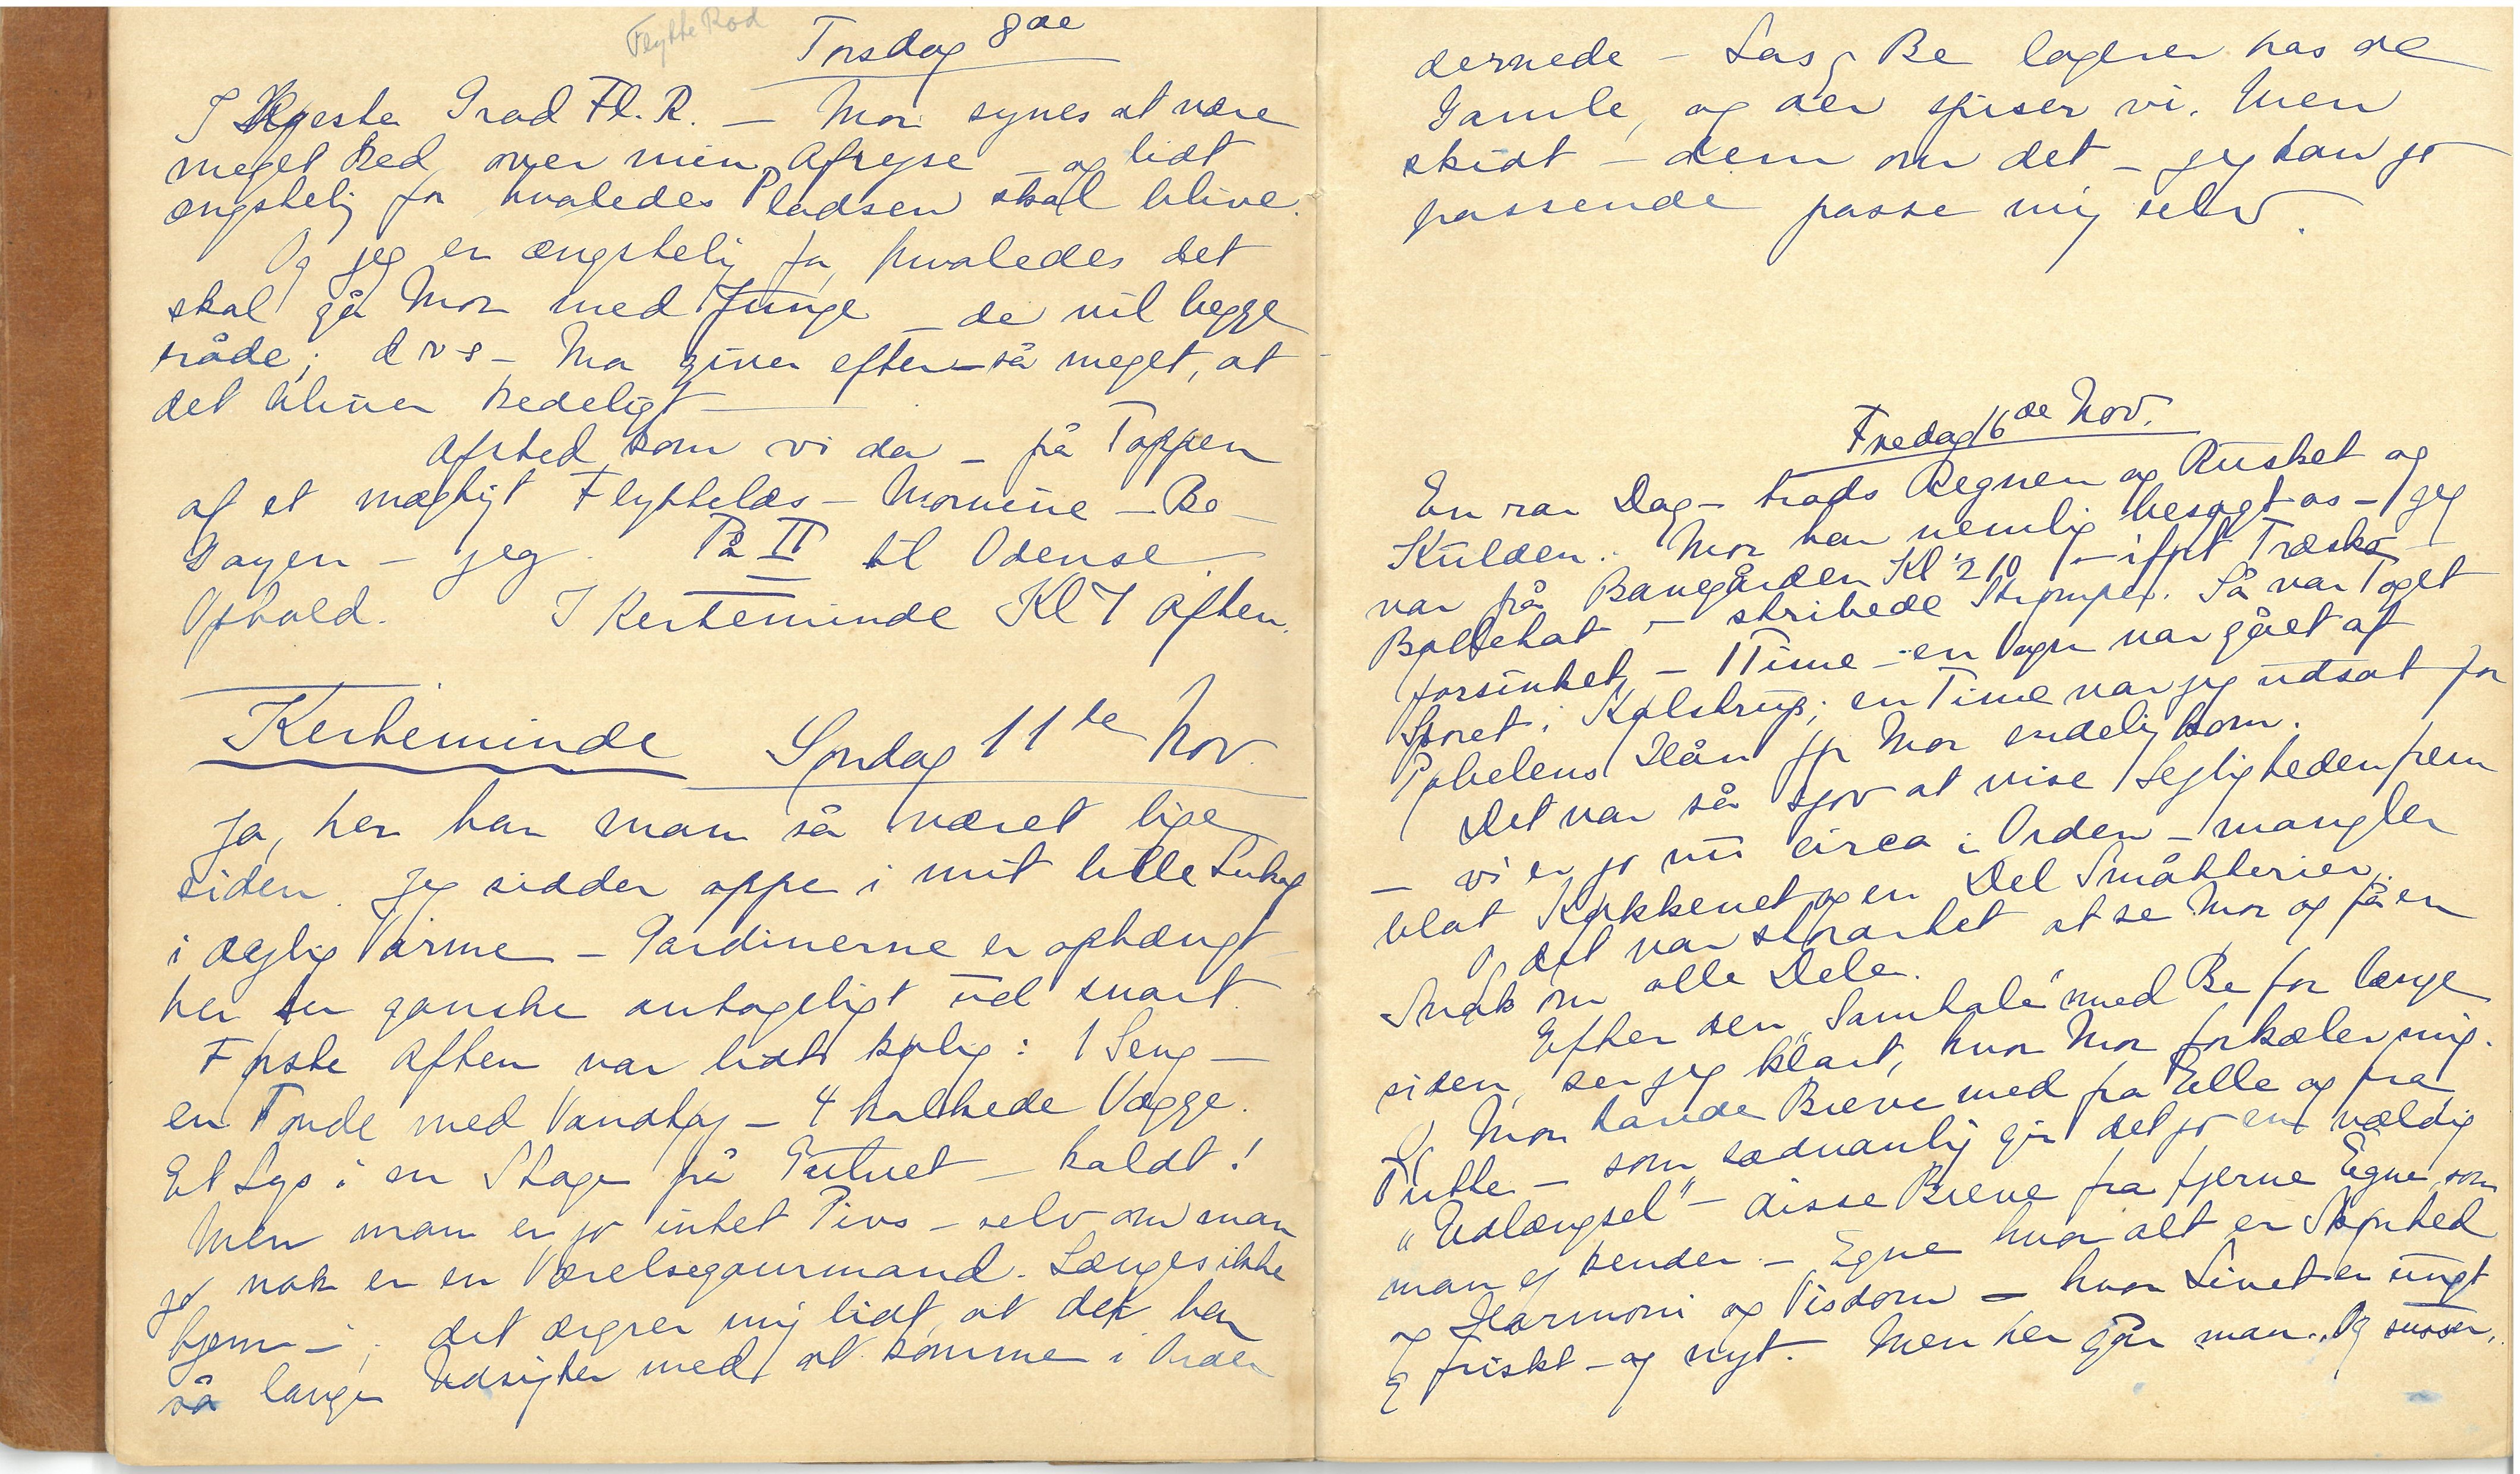 Flytte Rod
Torsdag 8de
I Højeste Grad Fl. R. – Mor synes at være
meget ked over min Afrejse – og lidt
ængstelig for hvaledes Pladsen skal blive.
Og jeg er ængstelig for hvaledes det
skal gå Mor med Junge – de vil begge
råde; d v s – Mor giver efter – så meget, at
det bliver kedeligt –
Afsted kom vi da – på Toppen
af et mægtigt Flyttelæs – Mornine – Be –
Gayen – jeg. På II til Odense
Ophold. I Kerteminde Kl 7 Aften.
Kerteminde Søndag 11te Nov.
Ja, her har man så været lige
siden. Jeg sidder oppe i mit lille Lukaf
i dejlig Varme – Gardinerne er ophængt
her ser ganske antageligt ud snart.
Første Aften var lidt kølig: 1 Seng –
en Tønde med Vandtøj – 4 kalkede Vægge.
Et Lys i en Stage på Gulvet – koldt!
Men man er jo intet Pivs – selv om man
jo nok er en Værelsegourmand. Længes ikke
hjem – ; det ærgrer mig lidt, at det har
så lange Udsigter med at komme i Orden
dernede – Las og Be logerer hos de
Gamle, og der spiser vi. Men
skidt – dem om det – jeg kan jo
passende passe mig selv.
Fredag 16de Nov.
En rar Dag – trods Regnen og Rusket og
Kulden. Mor har nemlig besøgt os – jeg
var på Banegården Kl 2 10 – iført Træsko –
Boldehat – stribede Strømper. Så var Toget
forsinket – 1 Time – en Vogn var gået af
Sporet i Kølstrup; en Time var jeg udsat for
Pøbelens Hån før Mor endelig kom.
Det var så sjov at vise Lejligheden frem
– vi er jo nu circa i Orden – mangler
blot Køkkenet og en Del Småtterier.
Og det var storartet at se Mor og få en
Snak om alle Dele.
Efter den "Samtale" med Be for længe
siden, ser jeg klart, hvor Mor forkæler mig.
Og Mor havde Breve med fra Elle og fra
Putte – som sædvanlig gir det jo en vældig
"Udlængsel" – disse Breve fra fjerne Egne, som
man ej kender – Egne hvor alt er Skønhed
og Harmoni og Visdom – hvor Livet er ungt
og friskt – og nyt. Men her går man. Og